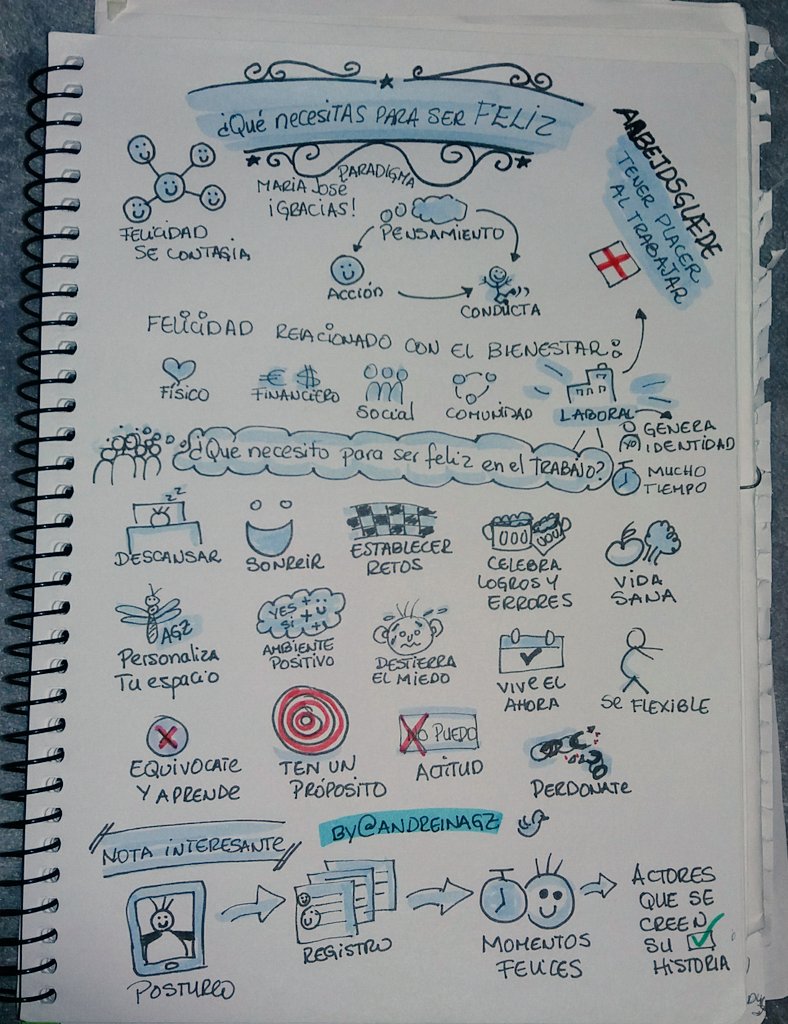 ¿Qué necesitas para ser FELIZ
FELICIDAD
SE CONTAGIA
MARIA JOSÉ
¡GRACIAS!
PARADIGMA
PENSAMIENTO
ACCIÓN
CONDUCTA
ARBEJDSGLÆDE
TENER PLACER
AL TRABAJAR
FELICIDAD RELACIONADO CON EL BIENESTAR:
FÍSICO
FINANCIERO
Social
COMUNIDAD
LABORAL
GENERA
IDENTIDAD
YO
MUCHO
TIEMPO
¿Qué necesito para ser feliz en el TRABAJO?
zz
DESCANSAR
SONREIR
ESTABLECER
RETOS
CELEBRA
LOGROS Y
ERRORES
VIDA
SANA
AGZ
Personaliza
Tu espacio
YES +
SI +
AMBIENTE
POSITIVO
DESTIERRA
EL MIEDO
VIVE EL
AHORA
Se FLEXIBLE
X
EQUIVOCATE
Y APRENDE
TEN UN
PRÓPOSITO
NO PUEDO
ACTITUD
PERDONATE
BY@ANDREINAGZ
NOTA INTERESANTE
POSTUREO
REGISTRO
MOMENTOS
FELICES
ACTORES
QUE SE
CREEN
SU
HISTORIA